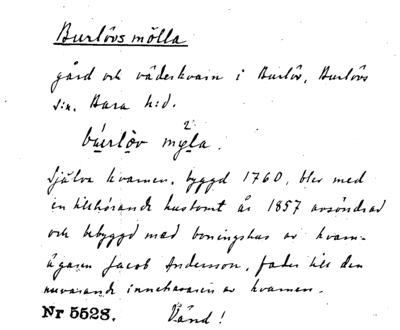 Burlövs mölla
gård och väderkvarn i Burlöv, Burlövs
s:n, Bara h:d.
búrlòv my̆la.
2
Själva kvarnen, byggd 1760, blev med
en tillhörande hustomt år 1857 avsöndrad
och bebyggd med boningshus av kvarn-
ägaren Jacob Andersson, fader till den
nuvarande innehavaren av kvarnen.
Nr 5528. Vänd!